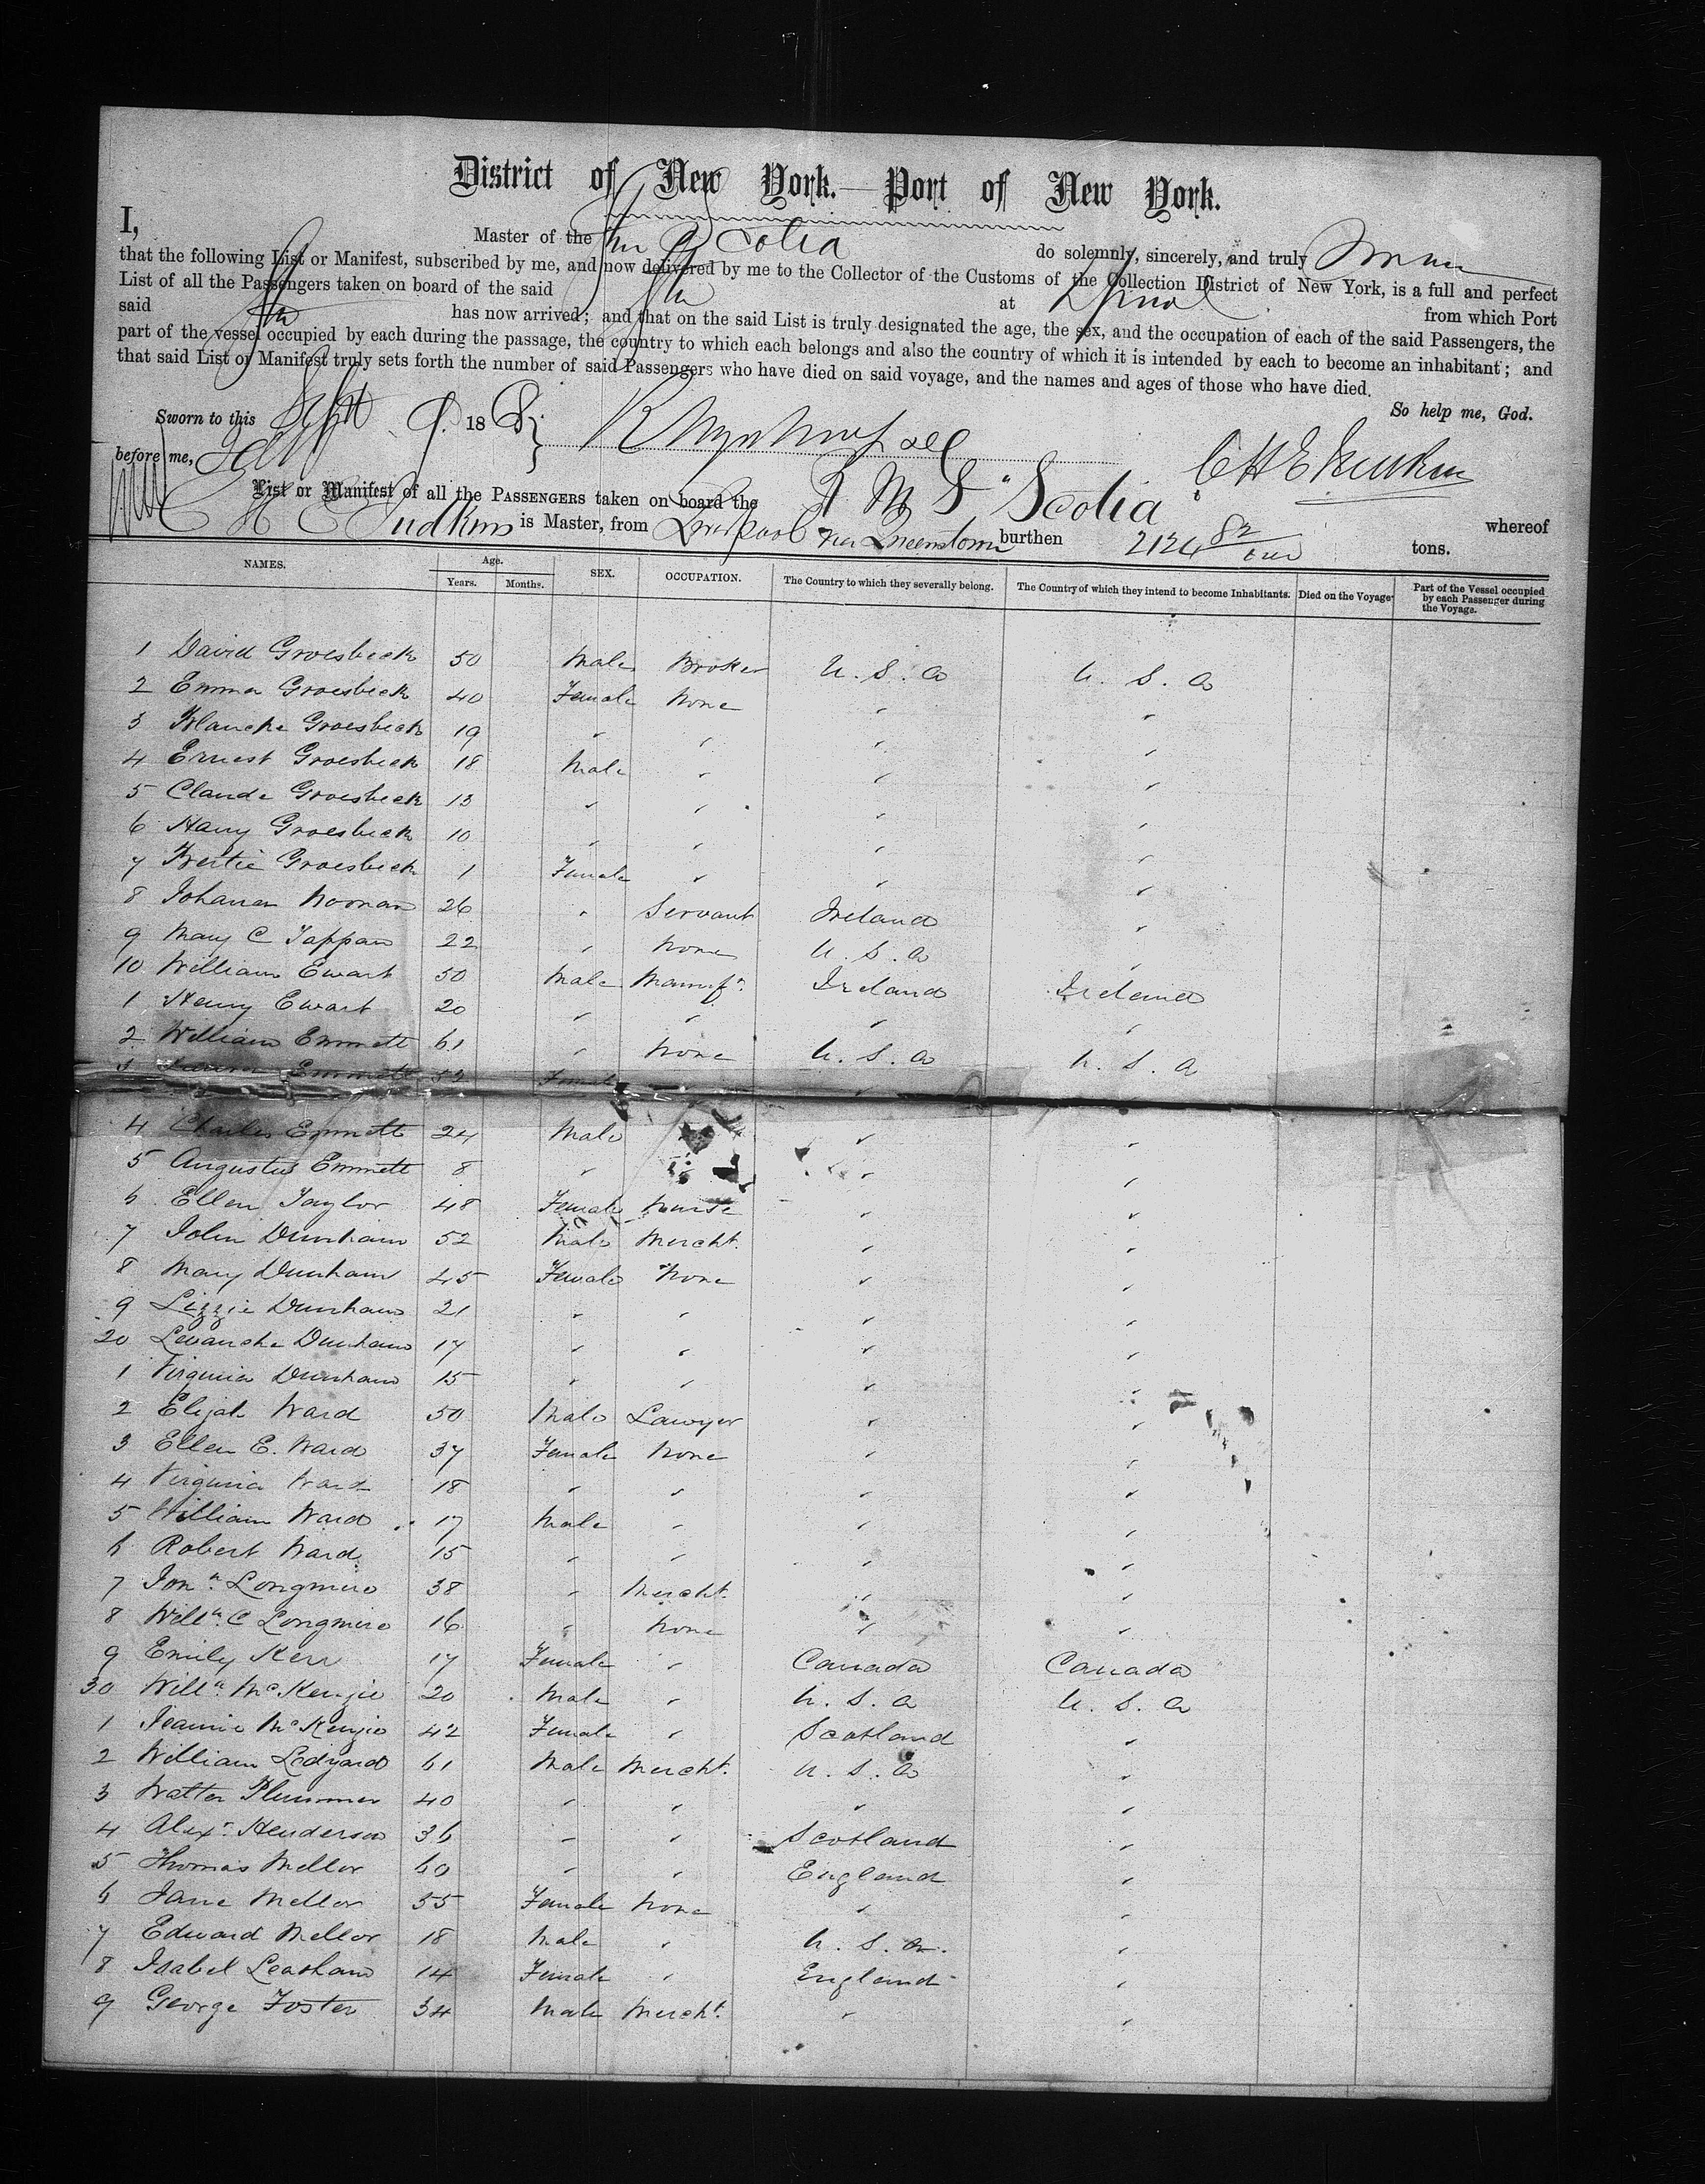 District of New York.—Port of New York.
I,
Master of the Scotia do solemnly, sincerely, and truly
that the following List or Manifest, subscribed by me, and now delivered by me to the Collector of the Customs of the Collection District of New York, is a full and perfect
List of all the Passengers taken on board of the said at from which Port
said has now arrived; and that on the said List is truly designated the age, the sex, and the occupation of each of the said Passengers, the
part of the vessel occupied by each during the passage, the country to which each belongs and also the country of which it is intended by each to become an inhabitant; and
that said List or Manifest truly sets forth the number of said Passengers who have died on said voyage, and the names and ages of those who have died.
So help me, God.
Sworn to this Sept 18
before me,
List or Manifest of all the PASSENGERS taken on board the R M S "Scotia" whereof
C H E Judkins is Master, from Liverpool Queenstown burthen tons.
NAMES. Age. Years. Months. SEX. OCCUPATION. The Country to which they severally belong. The Country of which they intend to become Inhabitants. Died on the Voyage. Part of the Vessel occupied by each Passenger during the Voyage.
1 David Groesbeck 50 Male Broker U.S.A U.S.A
2 Emma Groesbeck 40 Female None " "
3 Blanche Groesbeck 19 " " " "
4 Ernest Groesbeck 18 Male " " "
5 Claude Groesbeck 13 " " " "
6 Harry Groesbeck 10 " " " "
7 Bertie Groesbeck 1 Female " " "
8 Johanna Noonan 26 " Servant Ireland "
9 Mary C Tappan 22 " None U.S.A "
10 William Ewart 50 Male Manufr. Ireland Ireland
1 Henry Ewart 20 " " " "
2 William Emmett 61 " None U.S.A U.S.A
3 Emmett 52 Female
4 Charles Emmett 24 Male " "
5 Augustus Emmett 8 " " "
6 Ellen Taylor 48 Female Nurse " "
7 John Dunham 52 Male Mercht. " "
8 Mary Dunham 45 Female None " "
9 Lizzie Dunham 21 " " " "
20 Levanche Dunham 17 " " " "
1 Virginia Dunham 15 " " " "
2 Elijah Ward 50 Male Lawyer " "
3 Ellen E. Ward 37 Female None " "
4 Virginia Ward 18 " " " "
5 William Ward 17 Male " " "
6 Robert Ward 15 " " " "
7 Jonn. Longmire 38 " Mercht. " "
8 Willm. C Longmire 16 " None " "
9 Emily Kerr 17 Female " Canada Canada
30 Willm. McKenzie 20 Male " U.S.A U.S.A
1 Jeannie McKenzie 42 Female " Scotland "
2 William Ledyard 61 Male Mercht. U.S.A "
3 Walter Plummer 40 " " " "
4 Alexr. Henderson 36 " " Scotland "
5 Thomas Mellor 60 " " England "
6 Jane Mellor 55 Female None " "
7 Edward Mellor 18 Male " U.S.A. "
8 Isabel Leatham 14 Female " England "
9 George Foster 34 Male Mercht. " "